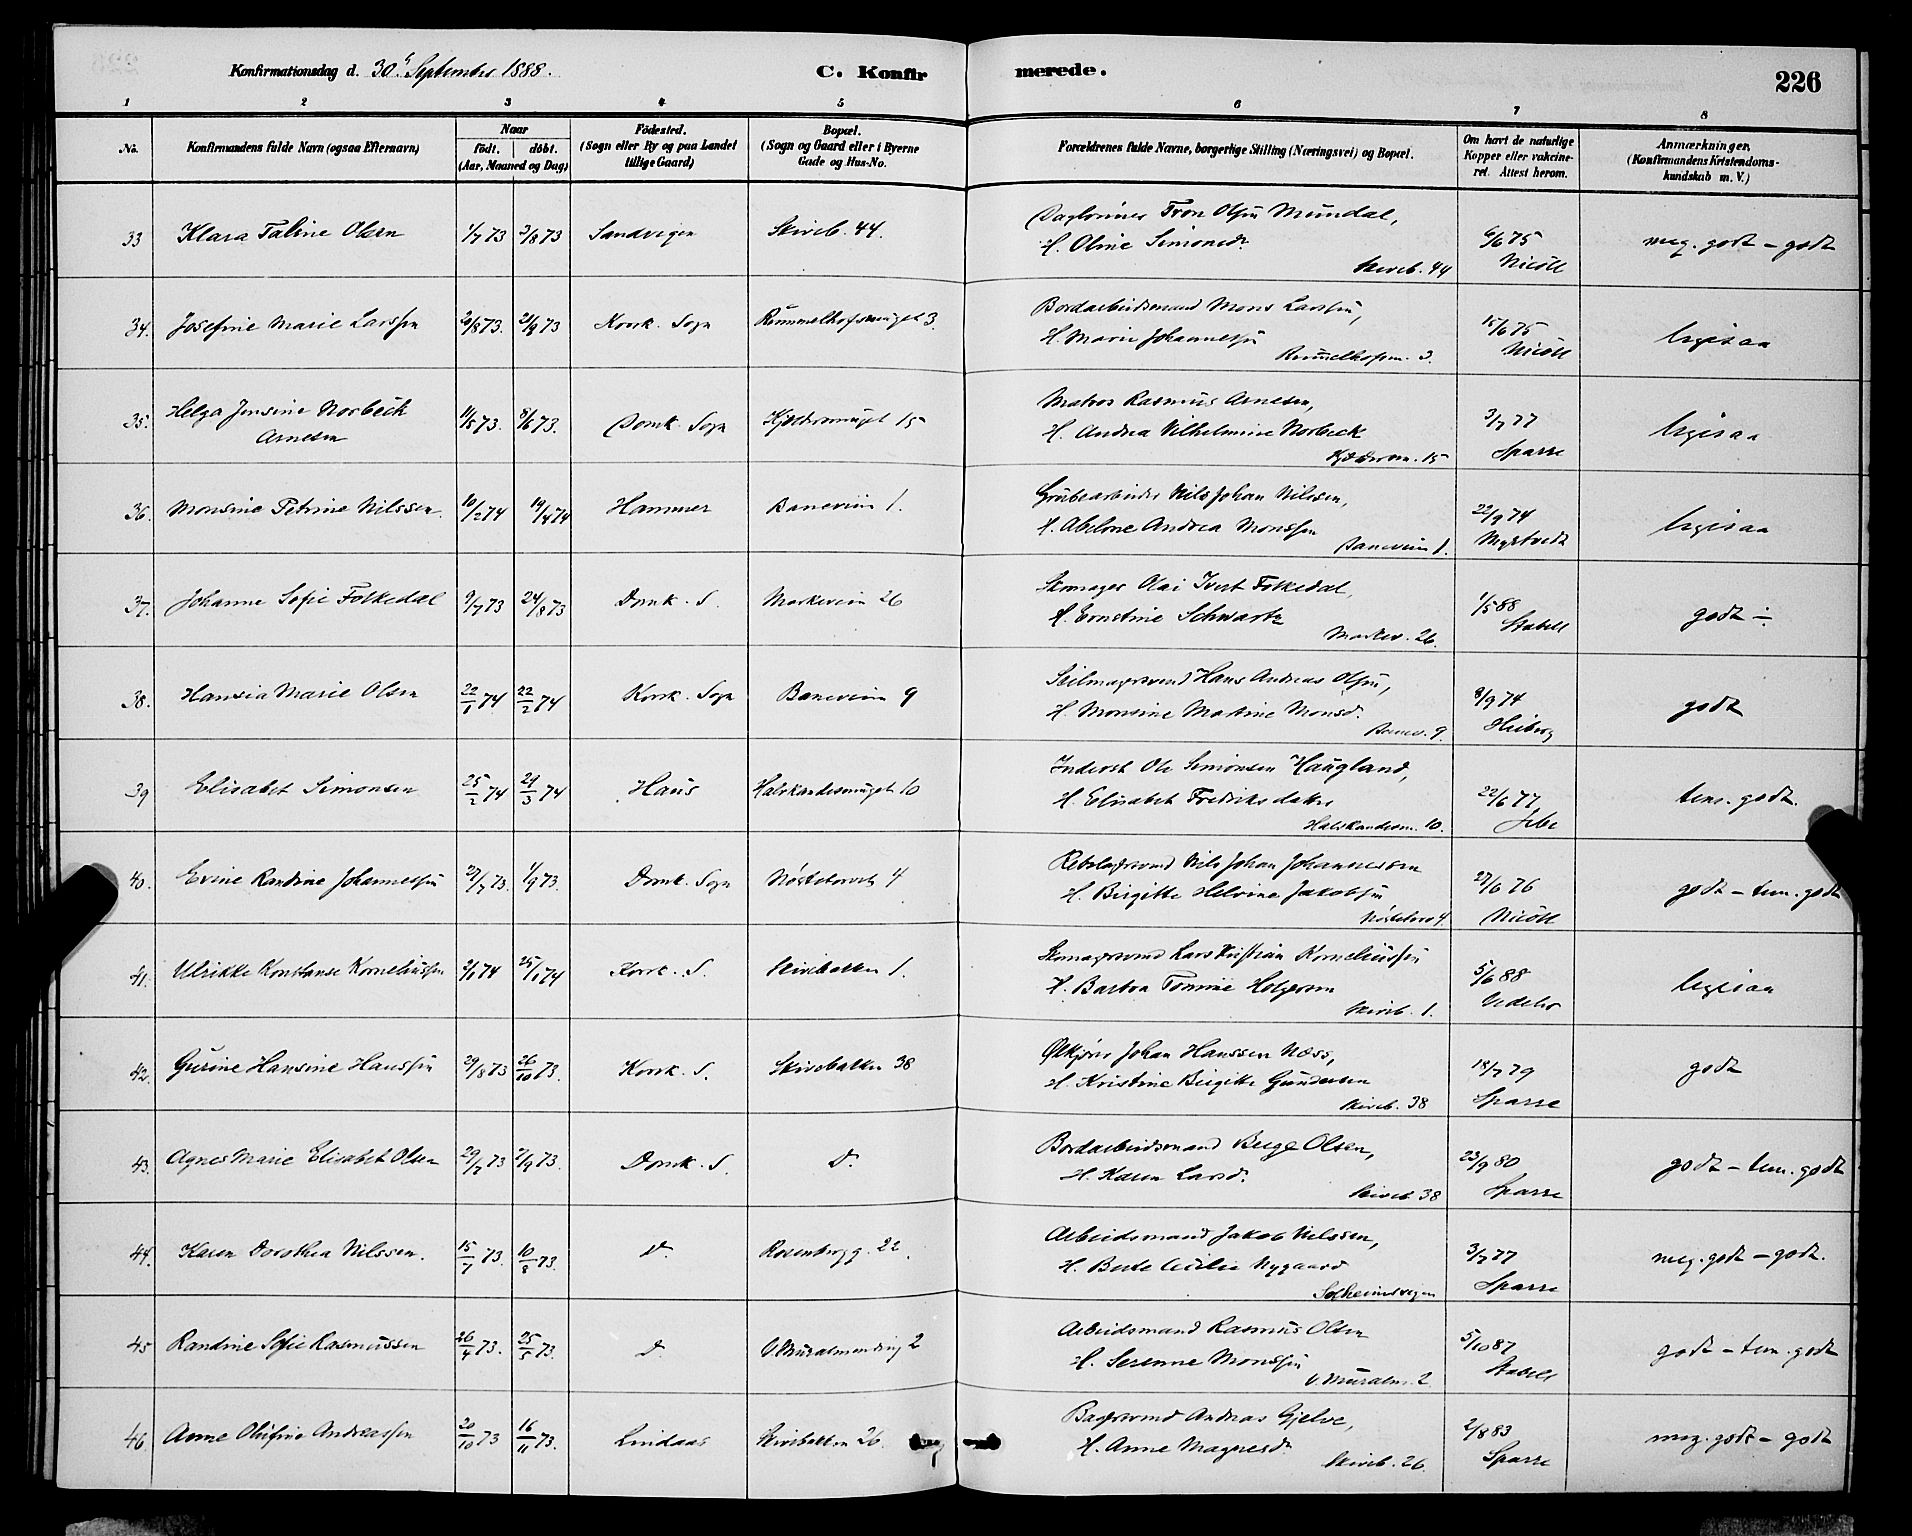 Konfirmationsdag d. 30 September 1888.
C. Konfirmerede.
226
1 2 3 4 5 6 7 8
No.
Konfirmandens fulde Navn (ogsaa Efternavn)
Naar
födt. döbt.
(Aar, Maaned og Dag)
Födested.
(Sogn eller By og paa Landet
tillige Gaard)
Bopæl.
(Sogn og Gaard eller i Byerne
Gade og Hus-No.
Forældrenes fulde Navne, borgerlige Stilling (Næringsvei) og Bopæl.
Om havt de naturlige
Kopper eller vakcine-
ret. Attest herom.
Anmærkninger.
(Konfirmandens Kristendoms-
kundskab m. V.)
33 Klara Taline Olsen 1/7 73 3/8 73 Sandvigen Skiveb. 44. Tron Olsen Mundal,
H. Oline Simonsd.
Skiveb. 44
6/6 75
Nicoll
meg. godt - godt
34. Josefine Marie Larssen 29/8 73. 21/9 73 Korsk. Sogn Rummelhofsmuget 3.
Bordarbeidsmand Mons Larssen,
H. Marie Johannessen
Rummelhofsm. 3.
15/6 75
Nicoll
ligesaa
35. Helga Jensine Norbeck
Arnesen
11/5 73. 8/6 73. Domk. Sogn Kjeldersmuget 15
Matros Rasmus Arnesen,
H. Andrea Vilhelmine Norbeck
Kjeldersm. 15
3/7 77
Sparre
ligesaa
36. Monsine Petrine Nilssen. 10/2 74 19/4 74 Hammer Baneveien 1.
Grubearbeider Nils Johan Nilssen,
H. Abelone Andrea Monssen
Baneveien 1.
22/9 74
Myrtvedt
ligesaa
37. Johanne Sofie Folkedal 9/7 73 24/8 73 Domk. S. Markeveien 26
Skomager Olai Ivert Folkedal,
H. Ernstine Schwartz
Markev. 26.
1/5 88
Stabell
godt ÷
38. Hansia Marie Olsen 22/1 74 22/2 74 Korsk. Sogn Baneveien 9
Seilmagersvend Hans Andreas Olsen,
H. Monsine Martine Monsd.
Banev. 9.
8/9 74
Heiberg
godt
39 Elisabet Simonsen 25/2 74 29/3 74 Haus Halvkandesmuget 10
Inderst Ole Simonsen Haugland,
H. Elisabet Fredriksdatter
Halvkandesm. 10.
22/6 77
Jebe
tem. godt.
40. Evine Randine Johannessen 27/7 73. 1/9 73. Domk. Sogn Nøstetorvet 4
Rebslagersvend Nils Johan Johannessen
H. Birgitte Helvine Jakobsen
Nøstetorv 4
27/6 76
Nicoll
godt - tem. godt
41. Ulrikke Konstanse Korneliussen 2/1 74 25/1 74 Korsk. S. Skivebakken 1.
Skomagersvend Lars Kristian Korneliussen
H. Barbra Tomine Holgersen
Skiveb. 1.
5/6 88
ligesaa
42. Gurine Hansine Hanssen 29/8 73 26/10 73. Korsk. S. Skivebakken 38
Ølkjører Johan Hanssen Næss,
H. Kristine Birgitte Gundersen
Skiveb. 38
18/7 79
Sparre
godt
43. Agnes Marie Elisabet Olsen 29/7 73 7/9 73. Domk. S. D.
Bordarbeidsmand Berge Olsen,
H. Karen Larsd.
Skiveb. 38
23/9 80
Sparre
godt - tem. godt
44. Karen Dorothea Nilssen. 15/7 73. 10/8 73. D. Rosenbergg. 22.
Arbeidsmand Jakob Nilssen,
H. Berte Cecilie Nygaard
Solheimsvigen
3/7 77
Sparre
meg. godt - godt.
45 Randine Sofie Rasmussen 26/4 73. 25/5 73. D. V. Muralmending 2
Arbeidsmand Rasmus Olsen
H. Serenne Monssen
V. Muralm. 2
5/10 87
Stabell
godt - tem. godt
46 Anne Olufine Andreassen 20/10 73 16/11 73. Lindaas Skivebakken 26.
Bagersvend Andreas Gjelve,
H. Anne Magnesd.
Skiveb. 26.
2/8 83
Sparre
meg. godt - godt